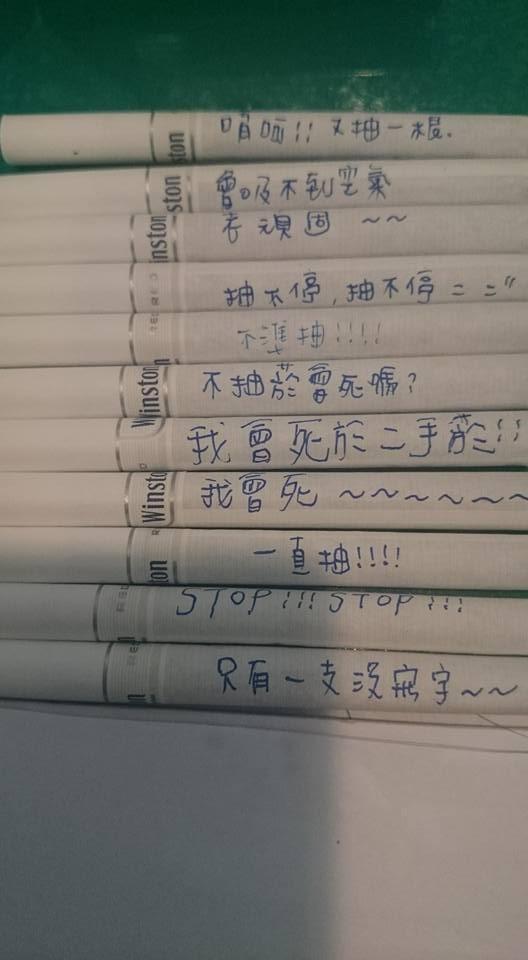 ston !! 又抽一根.
ston 會吸不到空氣
inston 老頑固 ~~
RED 抽不停, 抽不停 = ="
RED 不準抽!!!!
Winston 不抽菸會死嗎?
我會死於二手菸!!
Winston 我會死 ~~~~~~
ton 一直抽!!!!
RED STOP!!! STOP!!!
RED 只有一支沒寫字~~